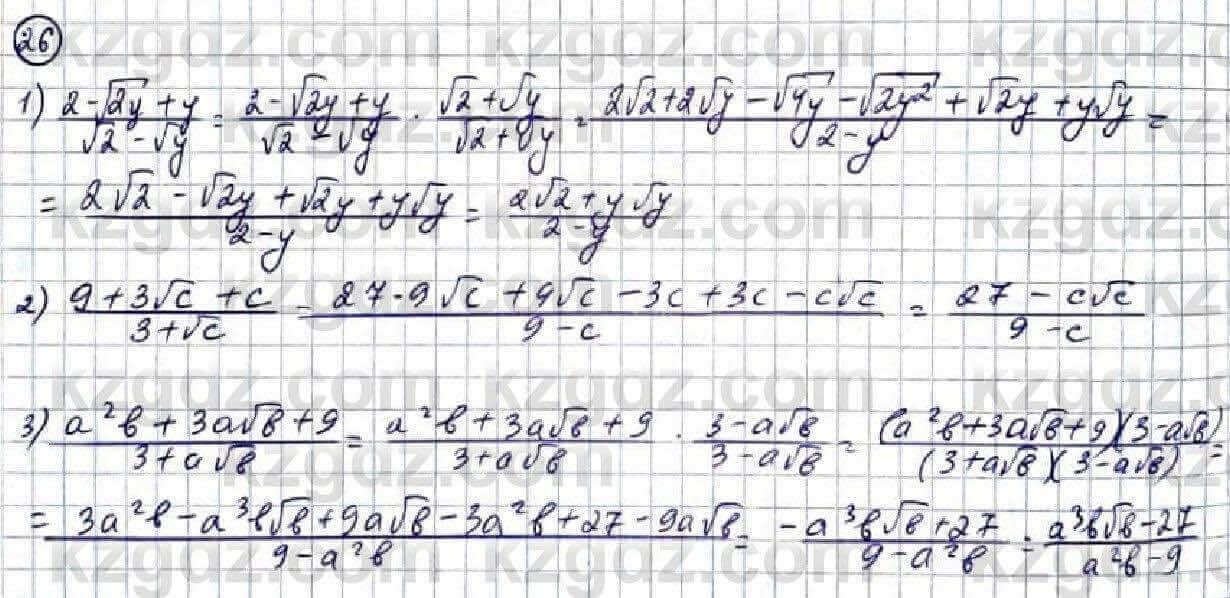 26
1) (2 - √2y + y)/(√2 - √y) = (2 - √2y + y)/(√2 - √y) · (√2 + √y)/(√2 + √y) = (2√2 + 2√y - √4y - √2y² + √2y + y√y)/(2 - y) =
= (2√2 - √2y + √2y + y√y)/(2 - y) = (2√2 + y√y)/(2 - y)
2) (9 + 3√c + c)/(3 + √c) = (27 - 9√c + 9√c - 3c + 3c - c√c)/(9 - c) = (27 - c√c)/(9 - c)
3) (a²b + 3a√b + 9)/(3 + a√b) = (a²b + 3a√b + 9)/(3 + a√b) · (3 - a√b)/(3 - a√b) = ((a²b + 3a√b + 9)(3 - a√b))/((3 + a√b)(3 - a√b)) =
= (3a²b - a³b√b + 9a√b - 3a²b + 27 - 9a√b)/(9 - a²b) = (-a³b√b + 27)/(9 - a²b) = (a³b√b - 27)/(a²b - 9)